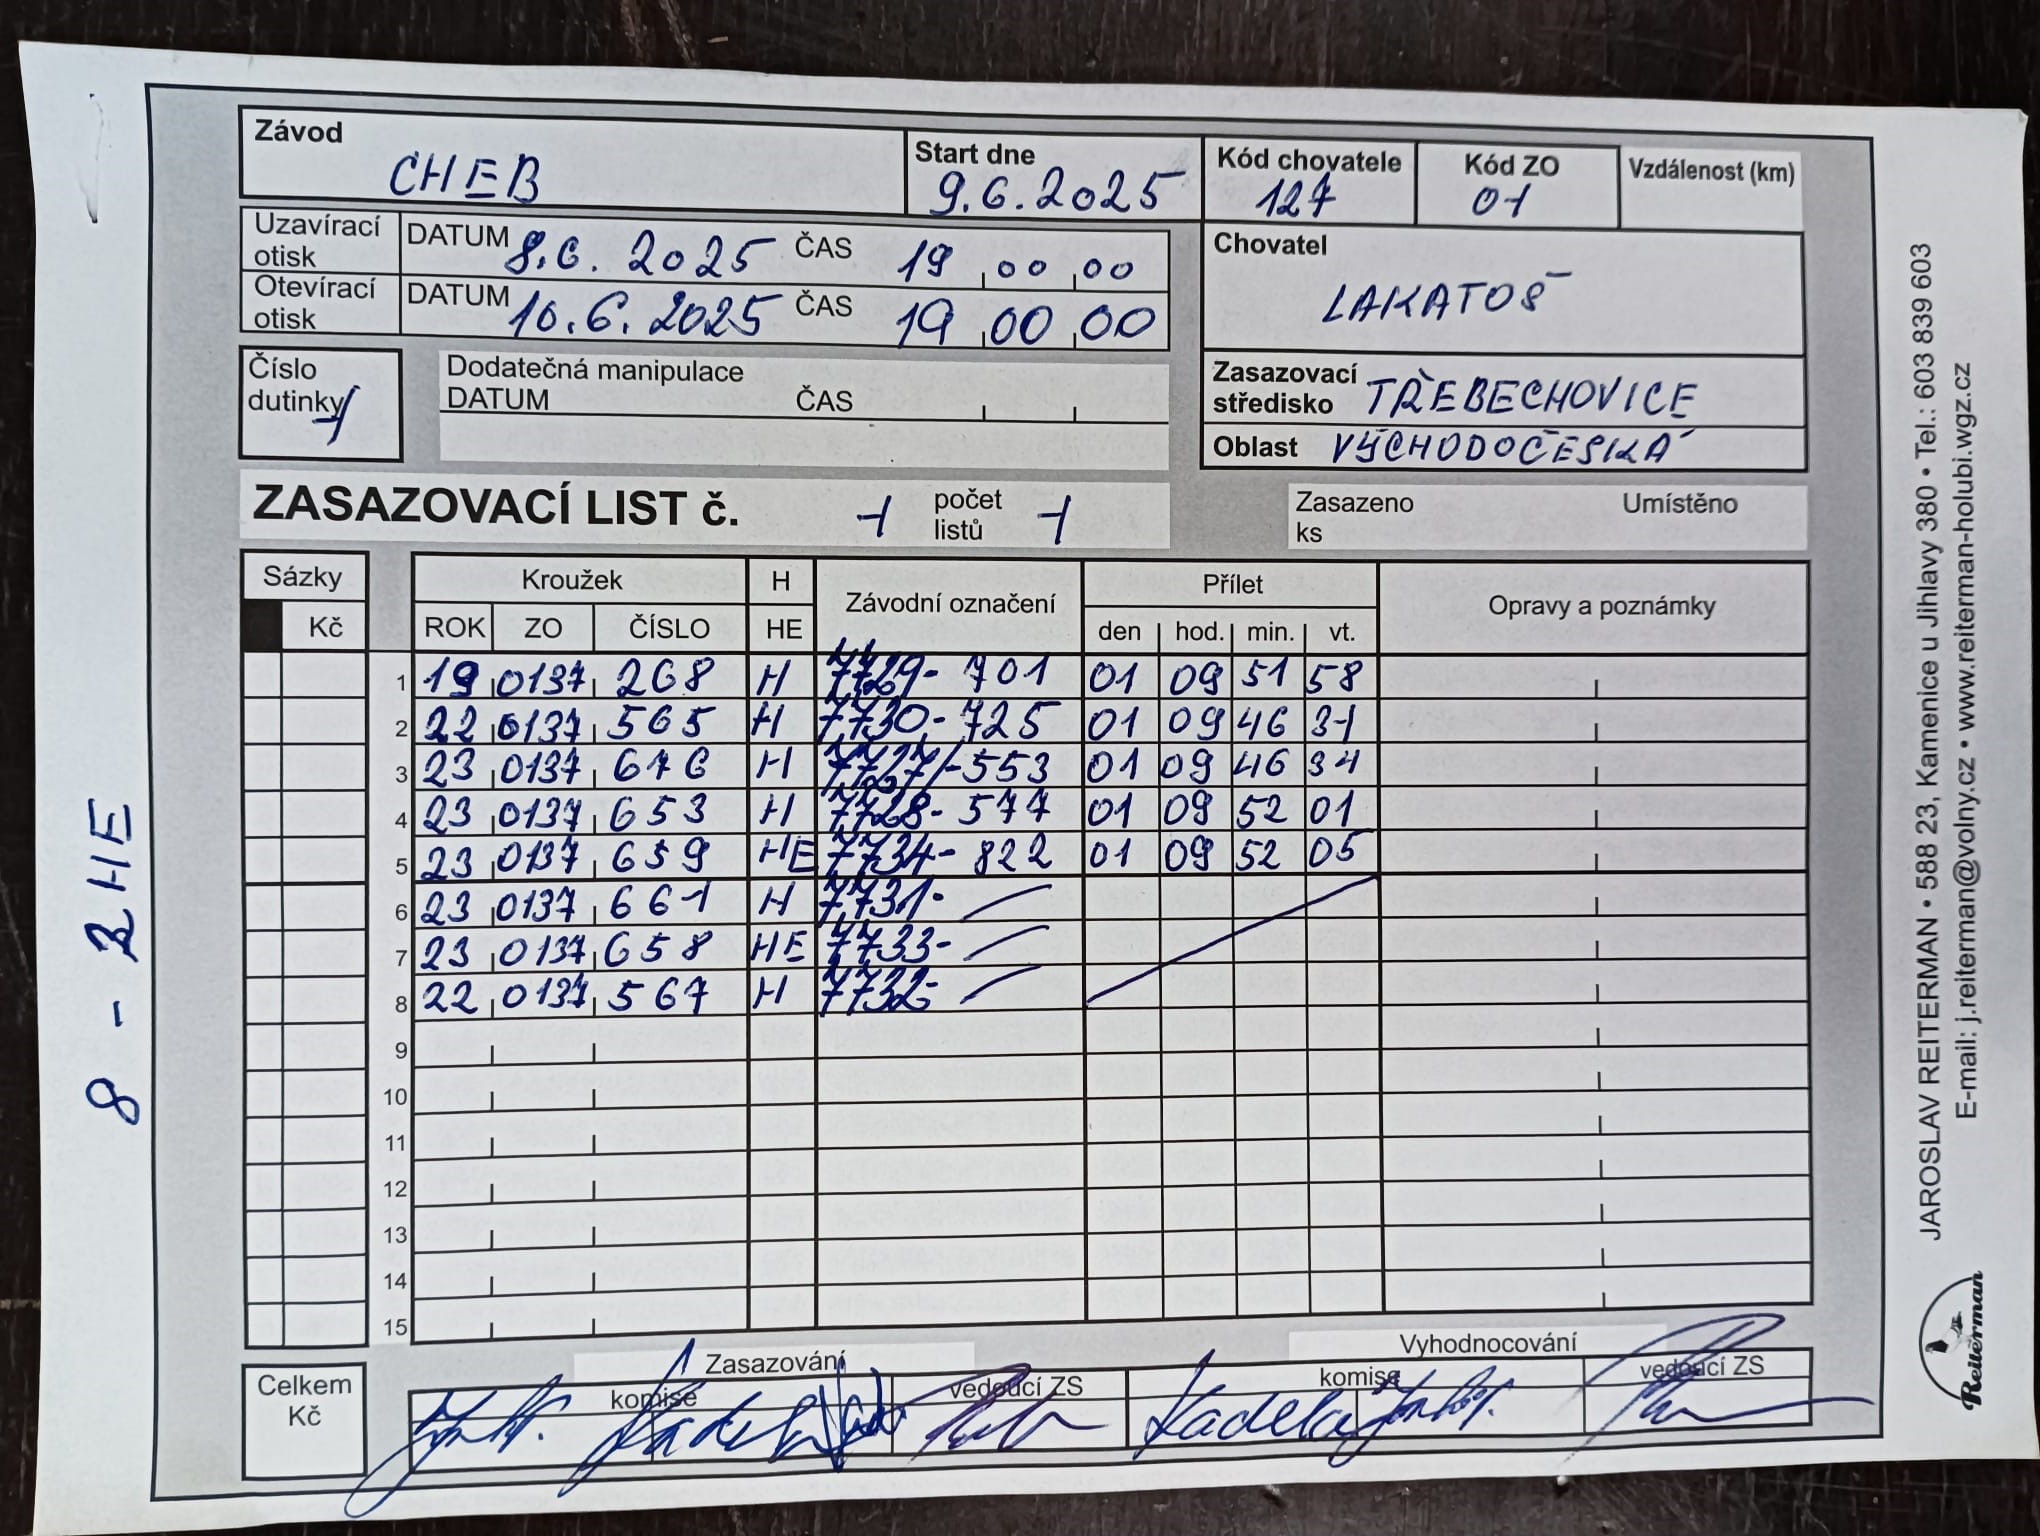 Závod CHEB
Start dne 9.6.2025
Kód chovatele 127
Kód ZO 01
Vzdálenost (km)
Uzavírací otisk DATUM 8.6. 2025 ČAS 19 00 00
Otevírací otisk DATUM 10.6.2025 ČAS 19 00 00
Chovatel LAKATOŠ
Číslo dutinky 1
Dodatečná manipulace
DATUM ČAS
Zasazovací středisko TŘEBECHOVICE
Oblast VÝCHODOČESKÁ
ZASAZOVACÍ LIST č. 1 počet listů 1
Zasazeno ks Umístěno
Sázky Kroužek H Závodní označení Přílet Opravy a poznámky
Kč ROK ZO ČÍSLO HE den hod. min. vt.
1 19 0137 268 H 7729- 701 01 09 51 58
2 22 0137 565 H 7730- 725 01 09 46 31
3 23 0137 676 H 7727-553 01 09 46 34
4 23 0137 653 H 7728- 577 01 09 52 01
5 23 0137 659 HE 7734- 822 01 09 52 05
6 23 0137 661 H 7731-
7 23 0137 658 HE 7733-
8 22 0137 567 H 7732-
9
10
11
12
13
14
15
Celkem Kč
Zasazování
komise vedoucí ZS
Vyhodnocování
komise vedoucí ZS
Kadela
8 - 2HE
JAROSLAV REITERMAN • 588 23, Kamenice u Jihlavy 380 • Tel.: 603 839 603
E-mail: j.reiterman@volny.cz • www.reiterman-holubi.wgz.cz
Reiterman